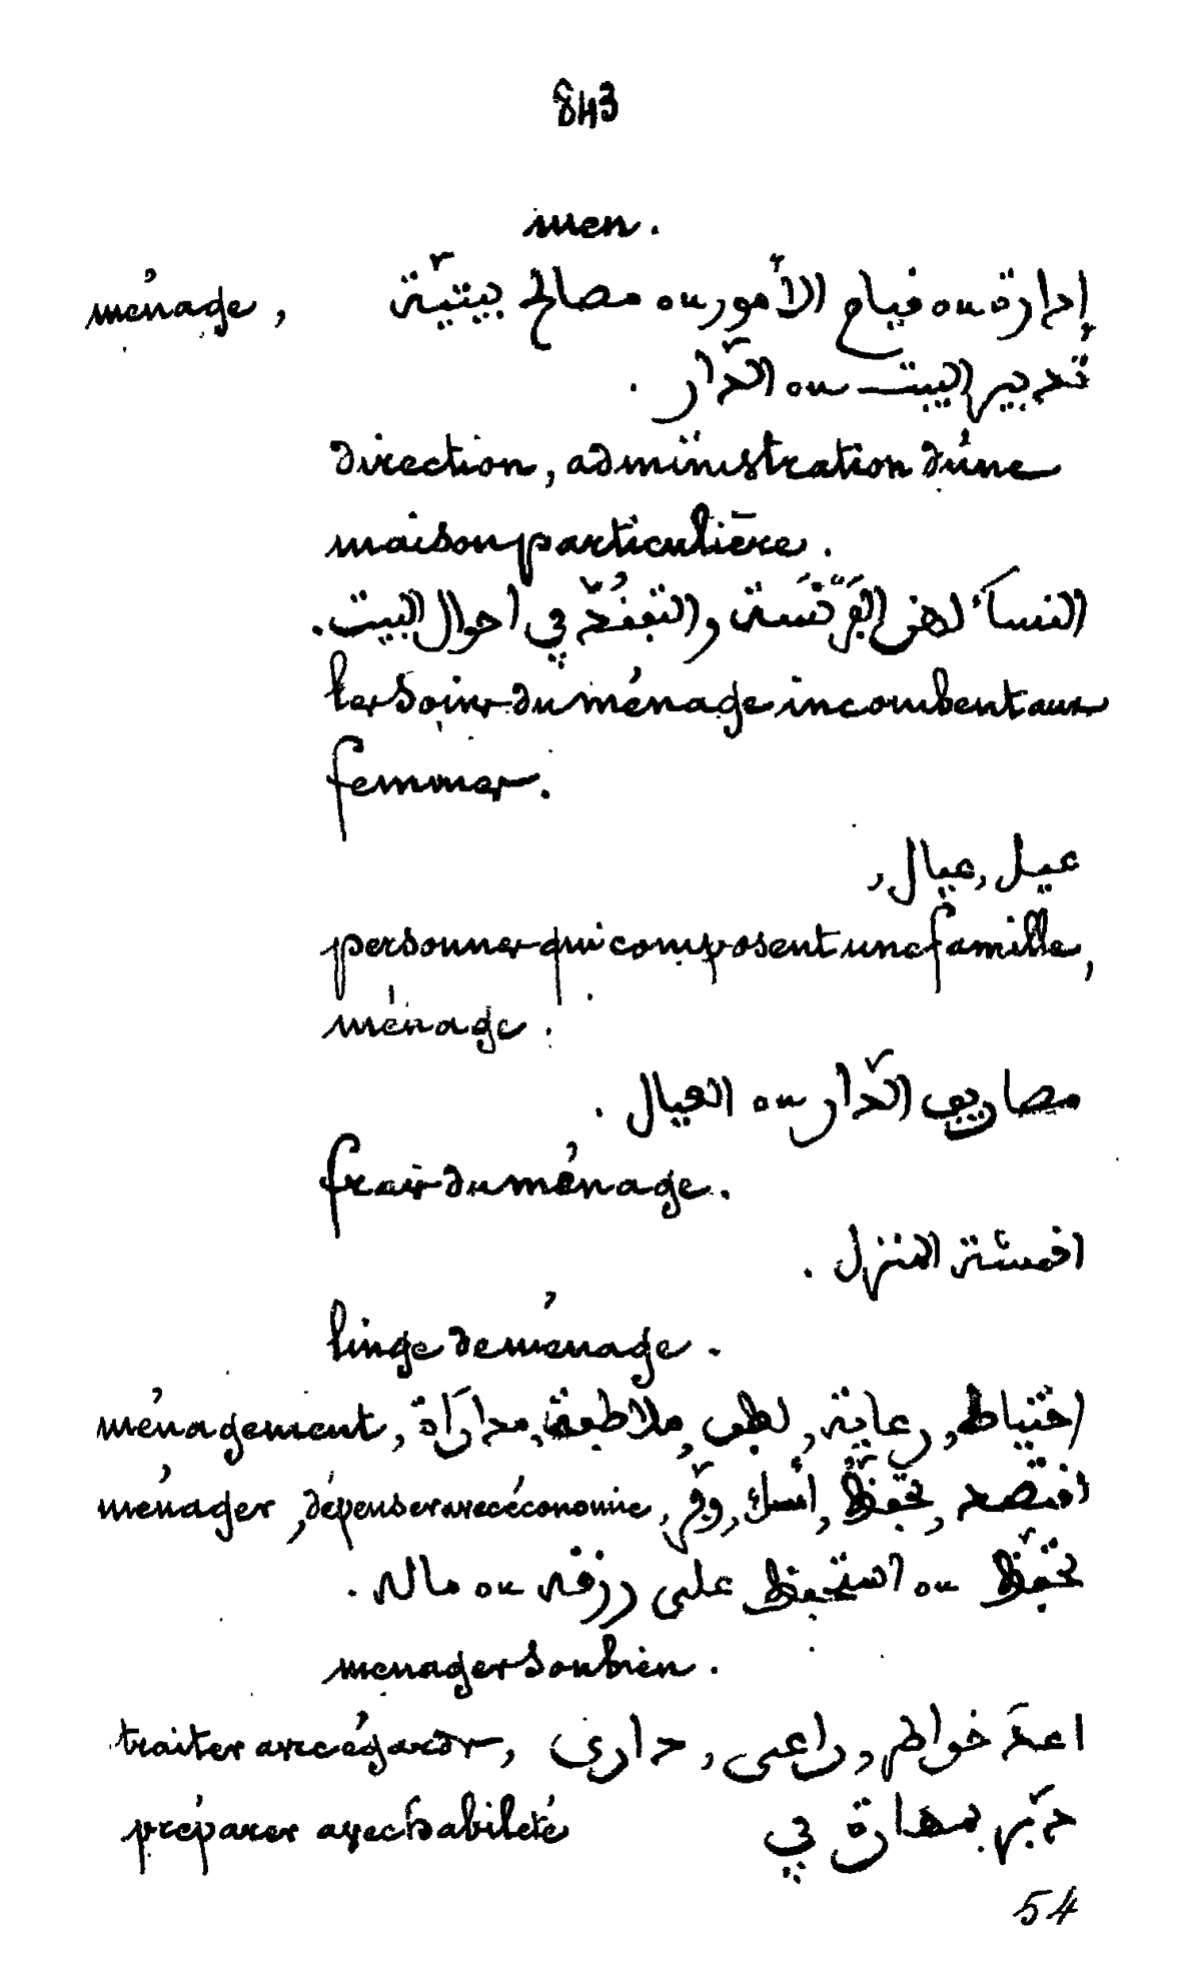 843
men.
ménage, إدارة ou قيام الأمور ou مصالح بيتيّة
تدبير البيت ou الدّار.
direction, administration d'une
maison particulière.
النساء لهن والتفقّد في احوال البيت.
les soins du ménage incombent aux
femmes.
عيل, عيال,
personnes qui composent une famille,
ménage.
مصاريف الدّار ou العيال.
frais du ménage.
اقمشة المنزل.
linge de ménage.
ménagement, احتياط, رعاية, لطف, ملاطفة, مداراة
ménager, dépenser avec économie, اقتصد, تحفّظ, أمسك, وفّر
تحفّظ ou استحفظ على رزقه ou ماله.
menager son bien.
traiter avec égards, خواطر, راعى, دارى
préparer avec habileté دبّر بمهارة في
54